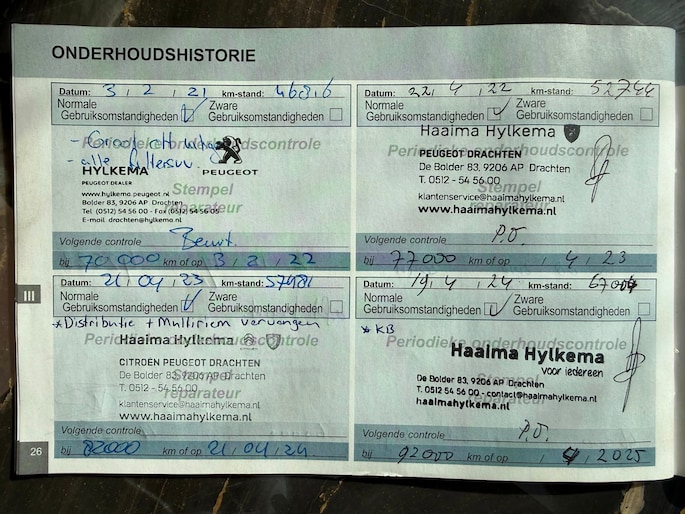 ONDERHOUDSHISTORIE
Datum: 3, 2, 21 km-stand: 46816
Normale Gebruiksomstandigheden Zware Gebruiksomstandigheden
Periodieke onderhoudscontrole
- Groot
- alle filters
HYLKEMA
PEUGEOT DEALER
PEUGEOT
www.hylkema.peugeot.nl
Bolder 83, 9206 AP Drachten
Tel (0512) 54 56 00 - Fax (0512) 54 56 05
E-mail drachten@hylkema.nl
Stempel reparateur
Volgende controle Beurt.
bij 70.000 km of op 3, 2, 22
Datum: 22, 4, 22 km-stand: 52744
Normale Gebruiksomstandigheden Zware Gebruiksomstandigheden
Haaima Hylkema
Periodieke onderhoudscontrole
PEUGEOT DRACHTEN
De Bolder 83, 9206 AP Drachten
T. 0512 - 54 56 00
Stempel reparateur
klantenservice@haaimahylkema.nl
www.haaimahylkema.nl
Volgende controle P.O.
bij 77000 km of op , 4, 23
Datum: 21, 04, 23 km-stand: 57481
Normale Gebruiksomstandigheden Zware Gebruiksomstandigheden
*Distributie + Multiriem vervangen
Periodieke onderhoudscontrole
Haaima Hylkema
CITROËN PEUGEOT DRACHTEN
De Bolder 83, 9206 AP Drachten
T. 0512 - 54 56 00
Stempel reparateur
klantenservice@haaimahylkema.nl
www.haaimahylkema.nl
Volgende controle
bij 82000 km of op 21, 04, 24.
Datum: 19, 4, 24 km-stand:
Normale Gebruiksomstandigheden Zware Gebruiksomstandigheden
* KB
Periodieke onderhoudscontrole
Haaima Hylkema
voor iedereen
De Bolder 83, 9206 AP Drachten
T. 0512 54 56 00 - contact@haaimahylkema.nl
haaimahylkema.nl
Stempel reparateur
Volgende controle P.O.
bij 92000 km of op , 4, 2025
III
26